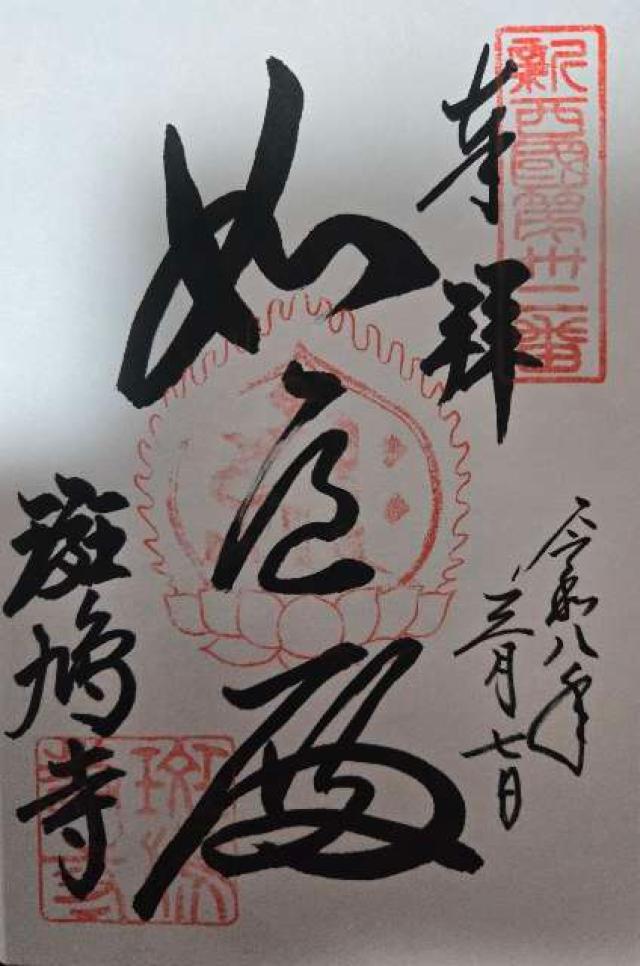 新西國第卅二番
奉拝
令和八年
三月七日
如意殿
斑鳩寺